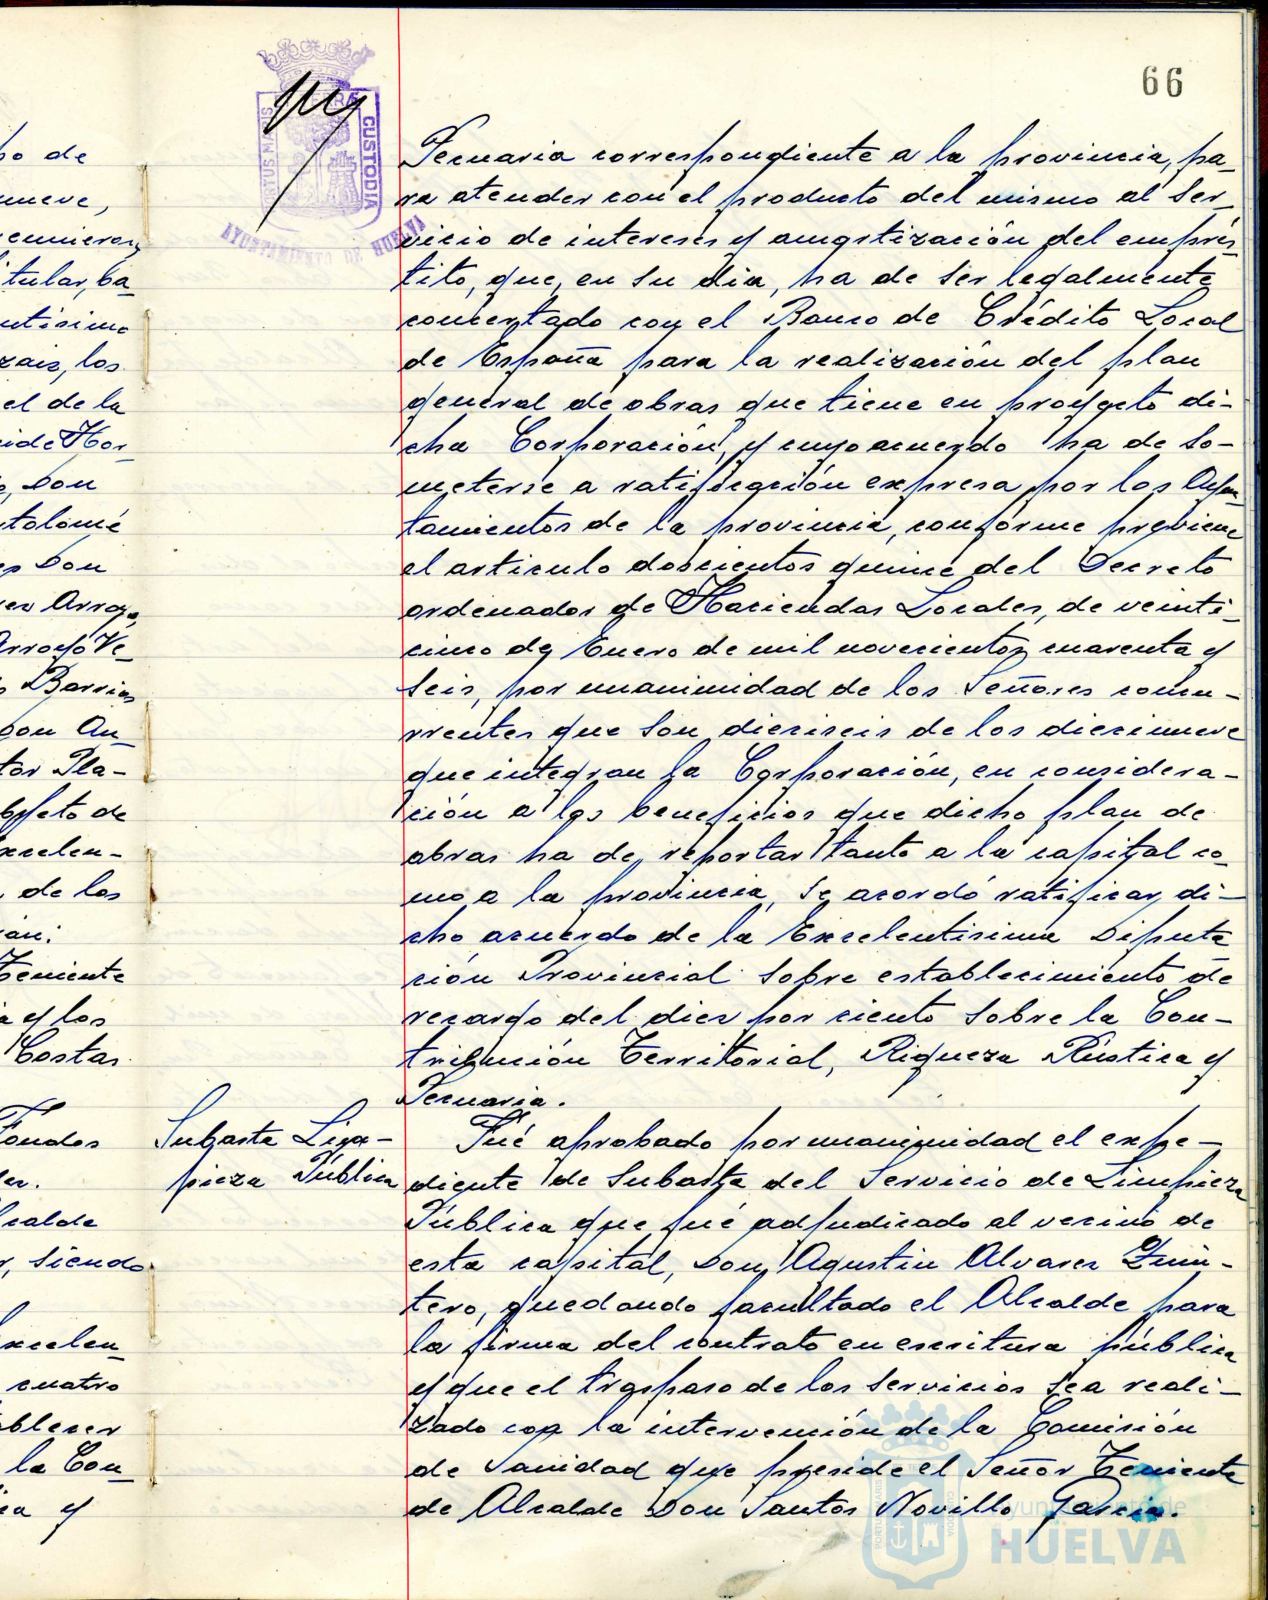 66
PORTUS MARIS
CUSTODIA
AYUNTAMIENTO DE HUELVA
po de
nueve,
reunieron
itular, ba-
ntisimo
zais, los
el de la
ide Hor-
Don
rtolomé
Don
Arroyo
Arroyo Ve-
Barrios
Don An-
tor Pla-
objeto de
xcelen-
de los
Teniente
a y los
Costas.
Fondos
calde
r, siendo
xcelen-
cuatro
ablecer
la Con-
ca y
Pecuaria correspondiente a la provincia, pa-
ra atender con el producto del mismo al ser-
vicio de intereses y amortización del emprés-
tito, que, en su dia, ha de ser legalmente
concertado con el Banco de Crédito Local
de España para la realización del plan
general de obras que tiene en proyecto di-
cha Corporación, y cuyo acuerdo ha de so-
meterse a ratificación expresa por los Ayun-
tamientos de la provincia, conforme previene
el articulo doscientos quince del Decreto
ordenador de Haciendas Locales, de veinti-
cinco de Enero de mil novecientos cuarenta y
seis, por unanimidad de los Señores concu-
rrentes que son dieciseis de los diecinueve
que integran la Corporación, en considera-
ción a los beneficios que dicho plan de
obras ha de reportar tanto a la capital co-
mo a la provincia, se acordó ratificar di-
cho acuerdo de la Excelentisima Diputa
ción Provincial sobre establecimiento de
recargo del diez por ciento sobre la Con-
tribución Territorial, Riqueza Rústica y
Pecuaria.
Subasta Lim-
pieza Pública
Fué aprobado por unanimidad el expe-
diente de Subasta del Servicio de Limpieza
Pública que fué adjudicado al vecino de
esta capital, Don Agustin Alvarez Quin-
tero, quedando facultado el Alcalde para
la firma del contrato en escritura pública
y que el traspaso de los servicios sea reali-
zado con la intervención de la Comisión
de Sanidad que preside el Señor Teniente
de Alcalde Don Santos Novillo Garcia.
Ayuntamiento de
HUELVA